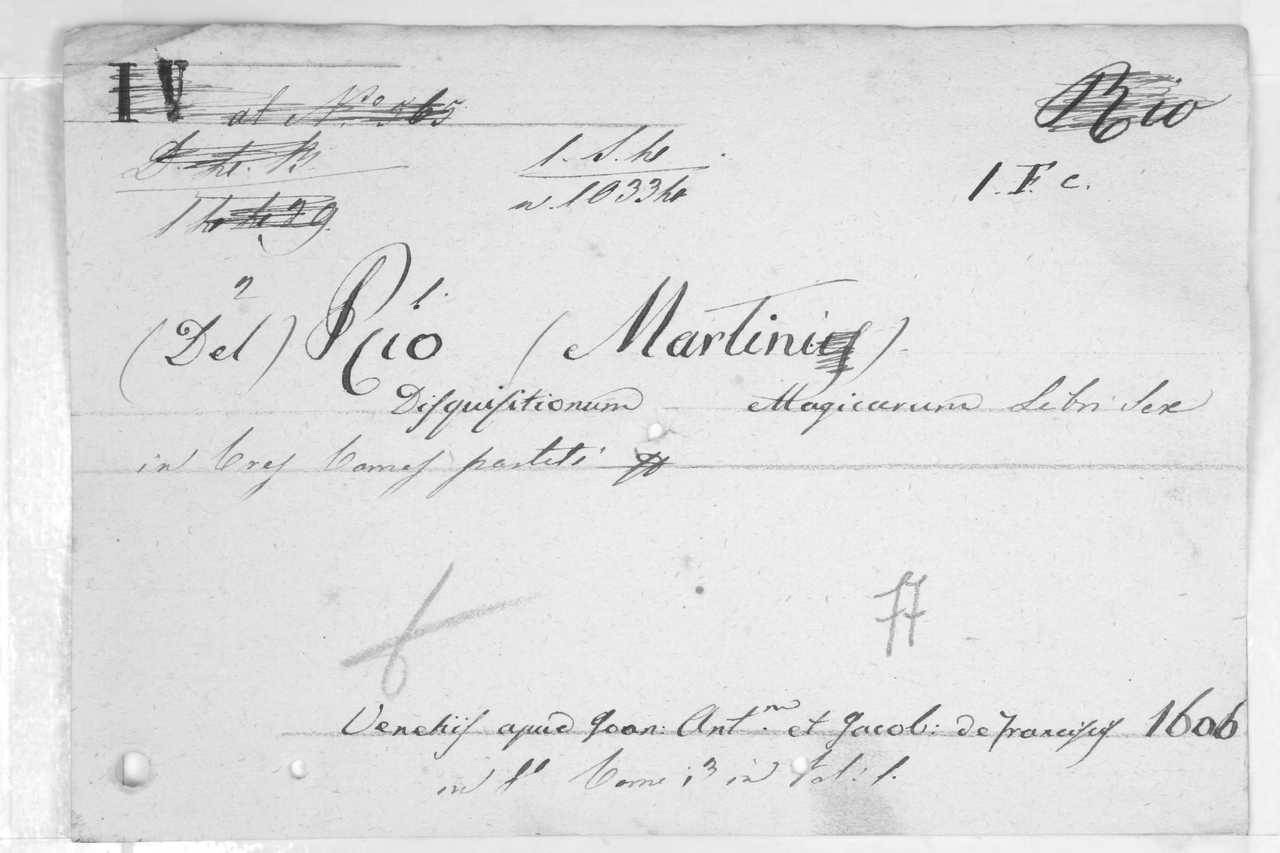 IV
al N.ro 565
Rio
1. F. c.
n. 10334
(Del) Rio (Martini)
2 1.
Disquisitionum Magicarum Libri Sex
in tres tomos partiti
77
Venetiis apud Joan: Ant.m et Jacob: de Franciscis 1606
in f.o Tomi 3 in Vol: 1.